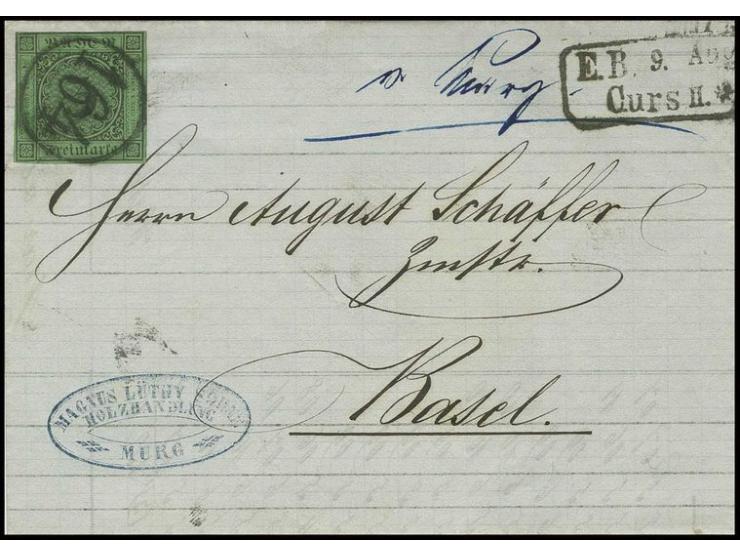 BADEN
Freimarke
v. Murg
E.B. 9. AUG
Curs II.
Herrn August Schäffer
Zmstr.
Basel.
MAGNUS LÜTHY
HOLZHANDLUNG
MURG